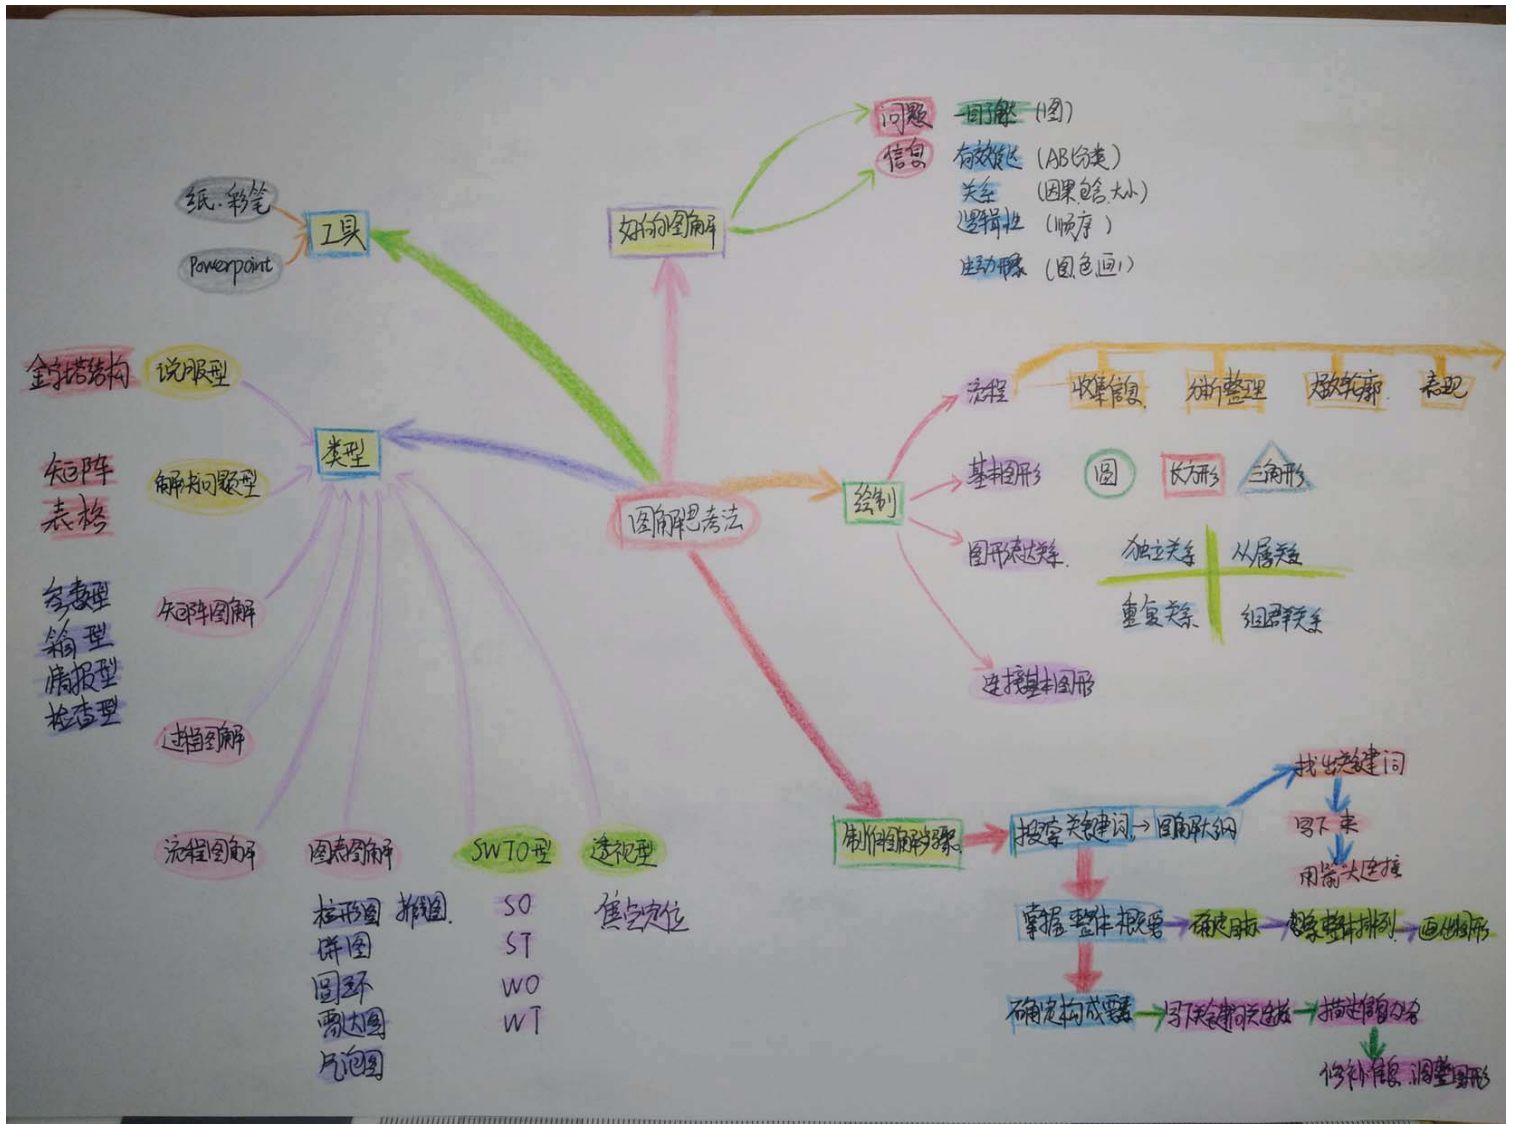 图解思考法
工具
纸.彩笔
Powerpoint
好的图解
问题
信息
一目了然 (图)
有效传达 (AB分类)
关系 (因果.包含.大小)
逻辑性 (顺序)
生动形象 (图.色.画)
类型
说服型
金字塔结构
解决问题型
矩阵
表格
矩阵图解
参数型
箱型
情报型
检查型
过程图解
流程图解
图表图解
柱形图
饼图
圆环
雷达图
气泡图
SWTO型
SO
ST
WO
WT
透视型
焦点定位
绘制
流程
收集信息
分析整理
轮廓.
表现
基本图形
圆
长方形
三角形
图形表达关系.
独立关系
从属关系
重复关系
组群关系
连接基本图形
制作图解步骤
搜索关键词→图解大纲
找出关键词
写下来
用箭头连接
掌握整体概要
确定目标
想象整体排列
画出图形
确定构成要素
写下关键词
描述信息
修补信息.调整图形